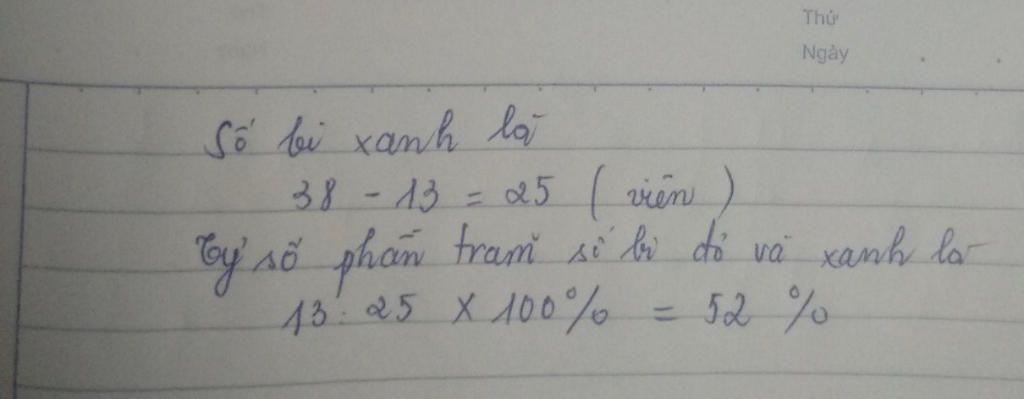 Thứ
Ngày
Số bi xanh là
38 - 13 = 25 ( viên )
Tỷ số phần trăm số bi đỏ và xanh là
13 : 25 x 100% = 52 %